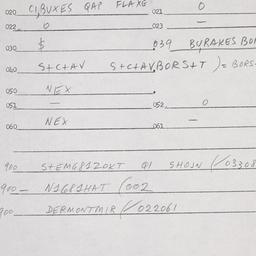 020 CI,BUXES GAP FLAXG 021 0
022 0 023 —
030 $ 039 BURAKES BO
040 S+C+AV S+C+AV,BORS+T )= BORS-
050 NEX
051 — 052 0
060 NEX 061 —
900 S+EMG81ZOKT QI SHOJN (/03308
900 — N1G81HAT (002
900 DERMONTMIR (/022061